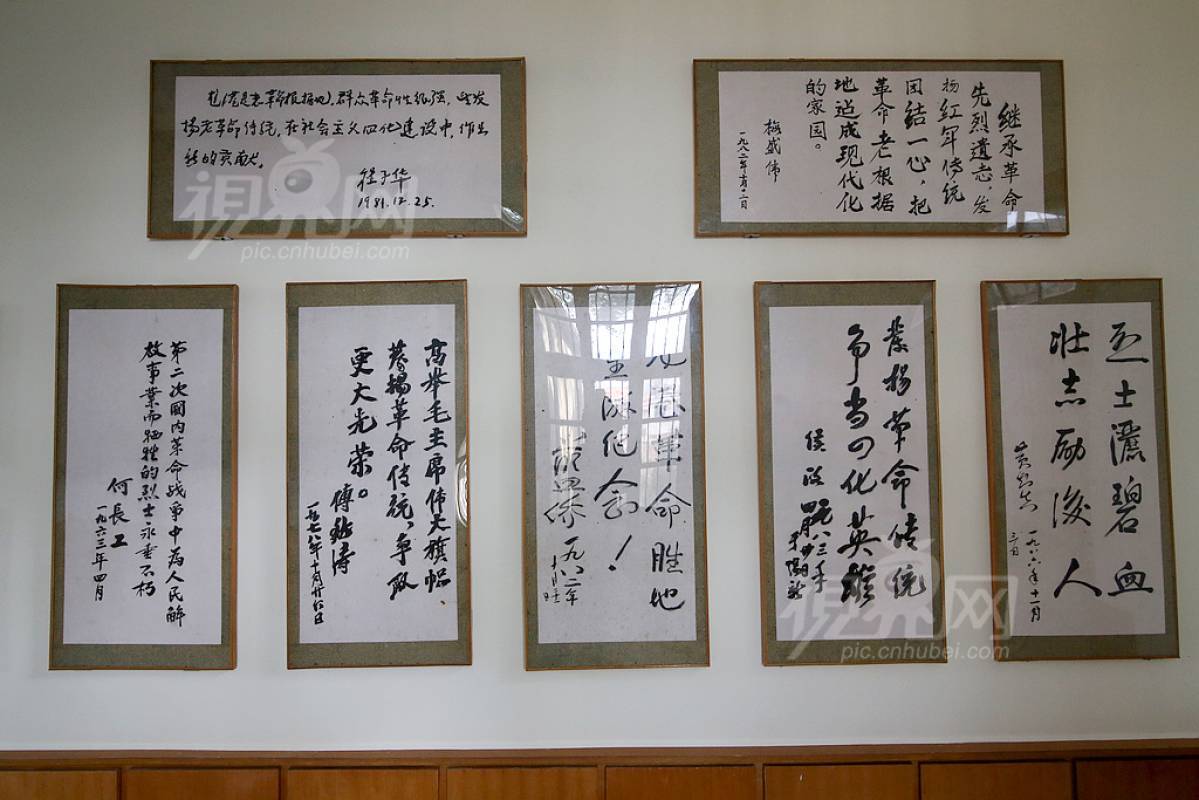 是老革命根据地，群众革命性很强，
扬老革命传统，在社会主义四化建设中，作出
的贡献。
程子华
1981.12.25.
继承革命
先烈遗志，发
扬红军传统
团结一心，把
革命老根据
地造成现代化
的家园。
梅盛伟
一九八二年十月二日
第二次国内革命战争中为人民解
放事业而牺牲的烈士永垂不朽
何長工
一九六三年四月
高举毛主席伟大旗帜
发扬革命传统，争取
更大光荣。
傅
一九七八年十月廿六日
革命胜地
一九八二年
发扬革命传统
争当四化英雄
侯政
一九八三年
烈士灑碧血
壮志励後人
一九八六年十一月
三日
視界网
pic.cnhubei.com
視界网
pic.cnhubei.com